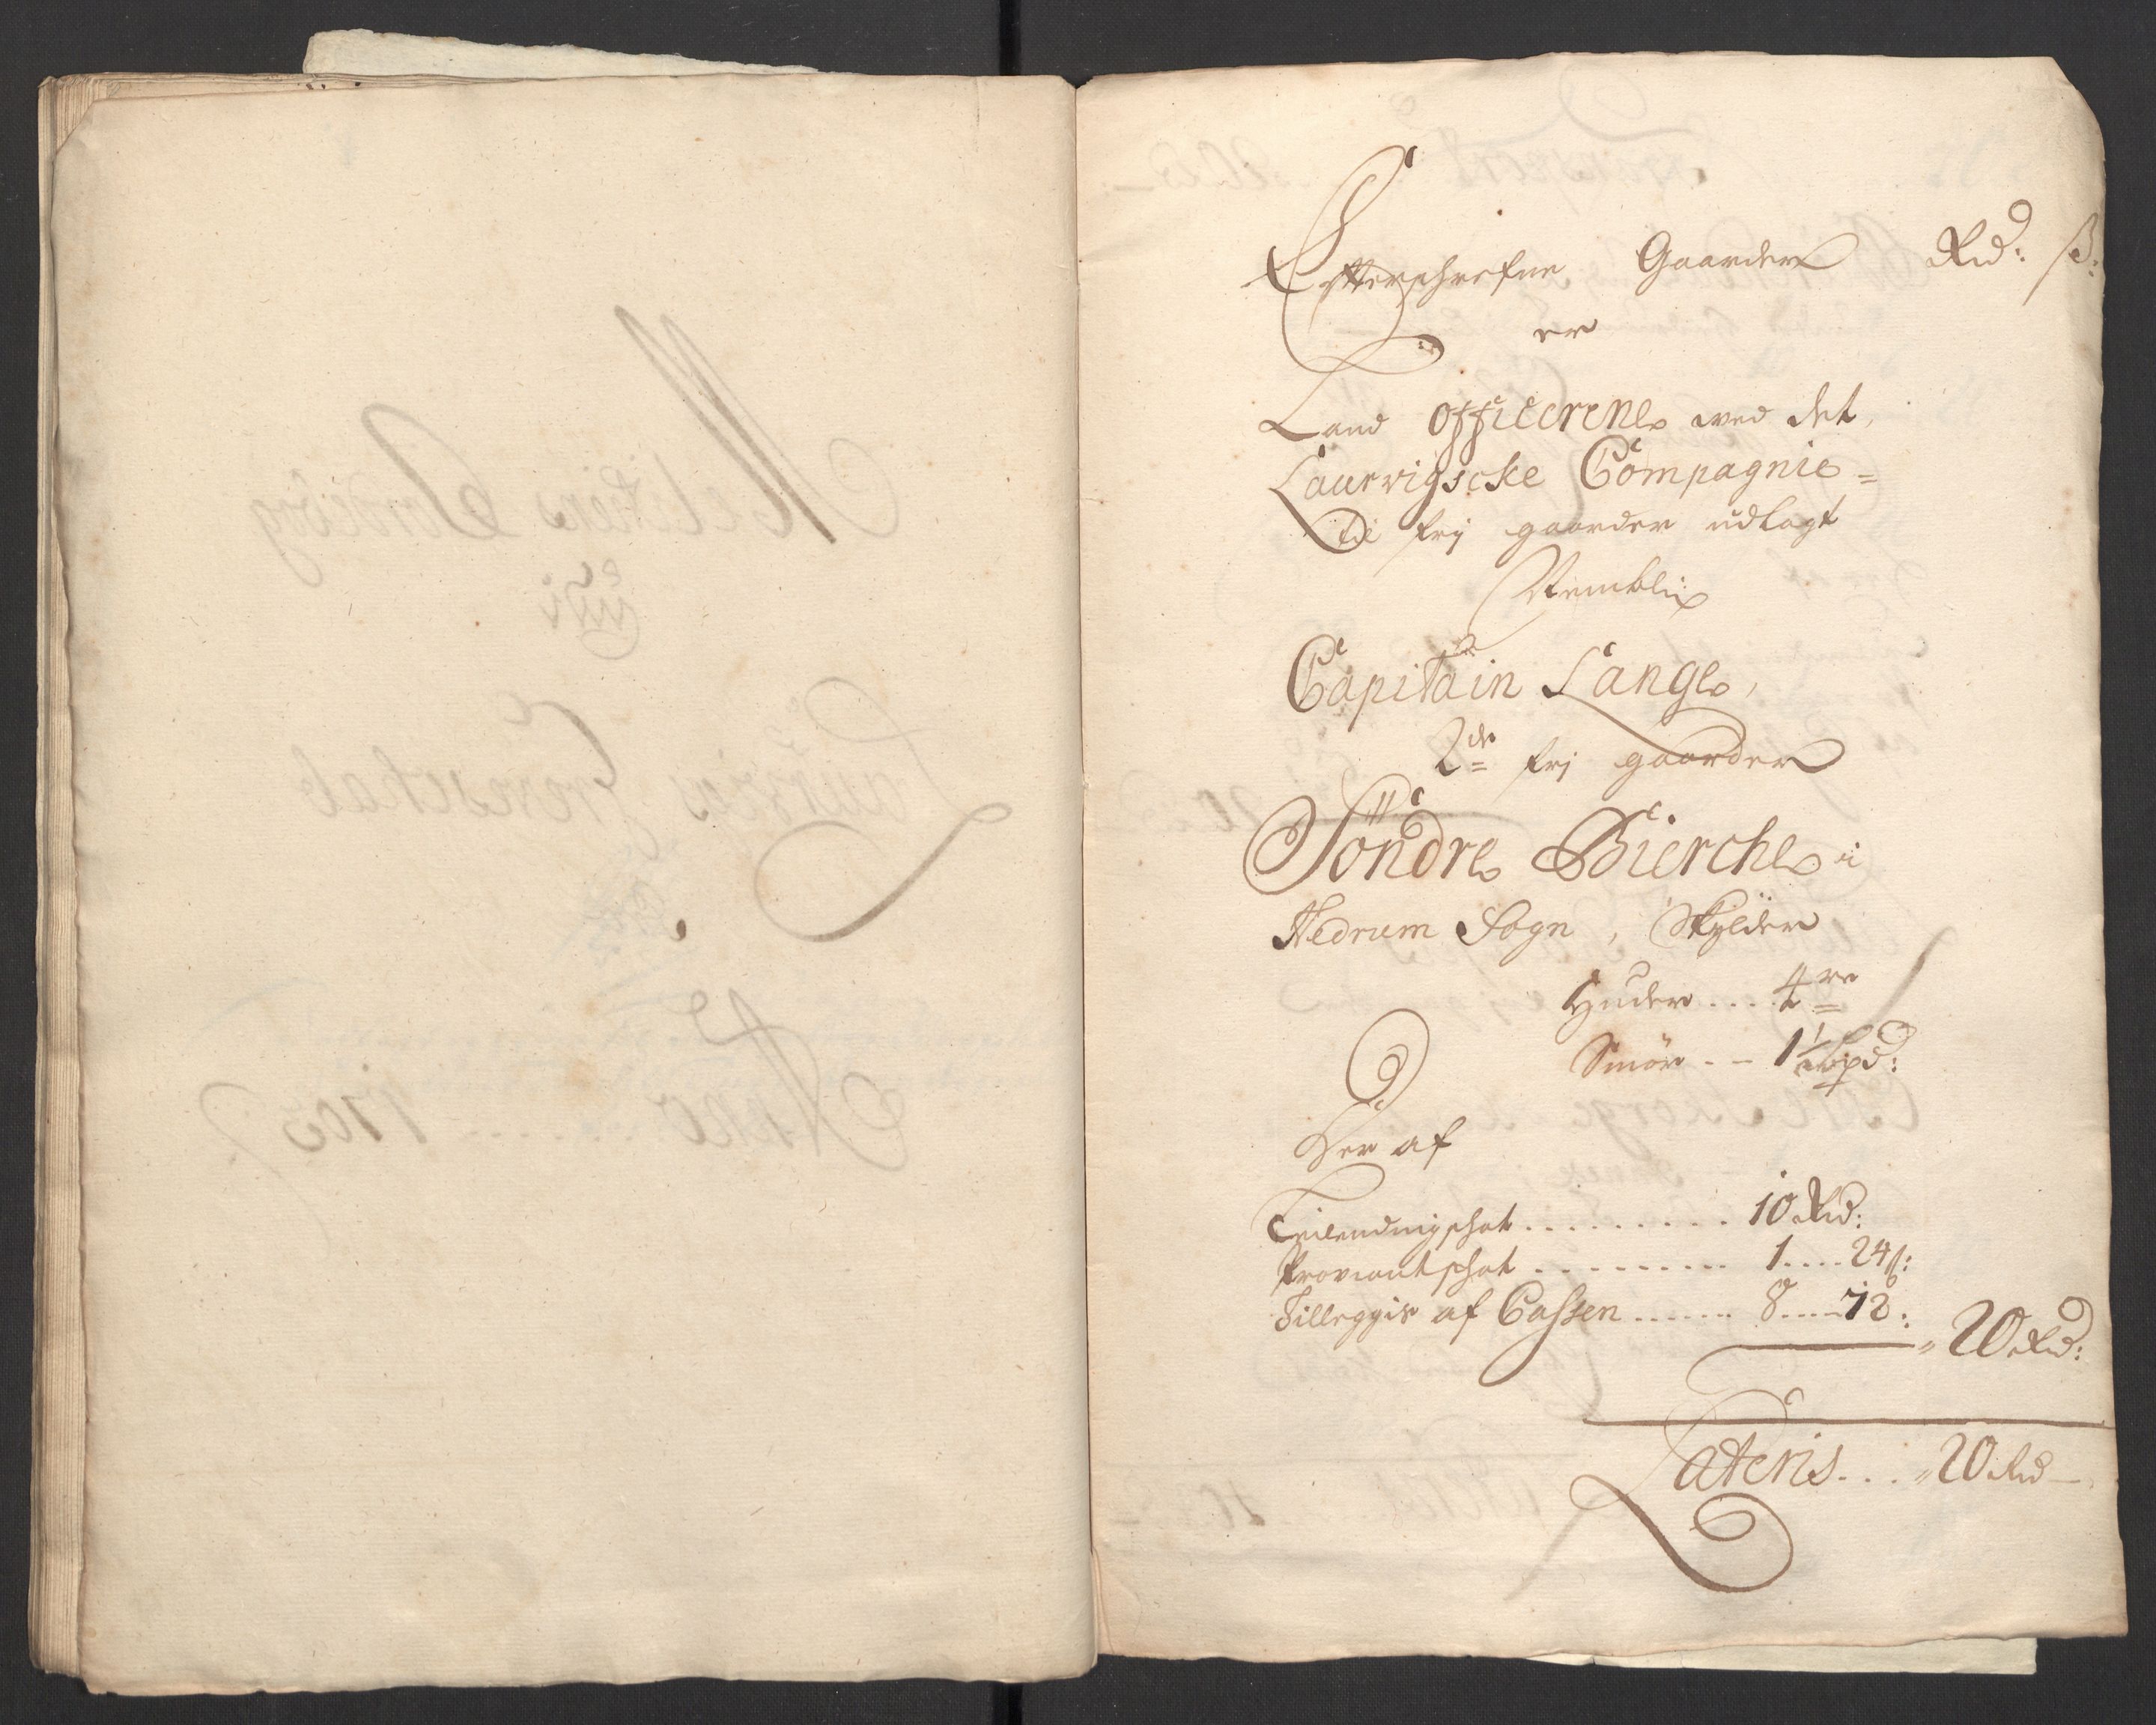 Efterschrefne Gaarder Rd: ß:
er
Land Officerene ved det
Laurvigscke Compagnie =
til frij gaarder udlagt
Nemblig
Capitain Lange,
2de frj gaarder
Söndre Bierche i
Hedrum Sogn, Skylder
Huder .... 4re
Smör -- 1½ Bpd:
Der af
Leilendingschat ......... 10 Rd:
Proviantschat .......... 1 .... 24ß:
Tilleggis af Cassen ....... 8 .... 72:
20 Rd:
Lateris ... 20 Rd —